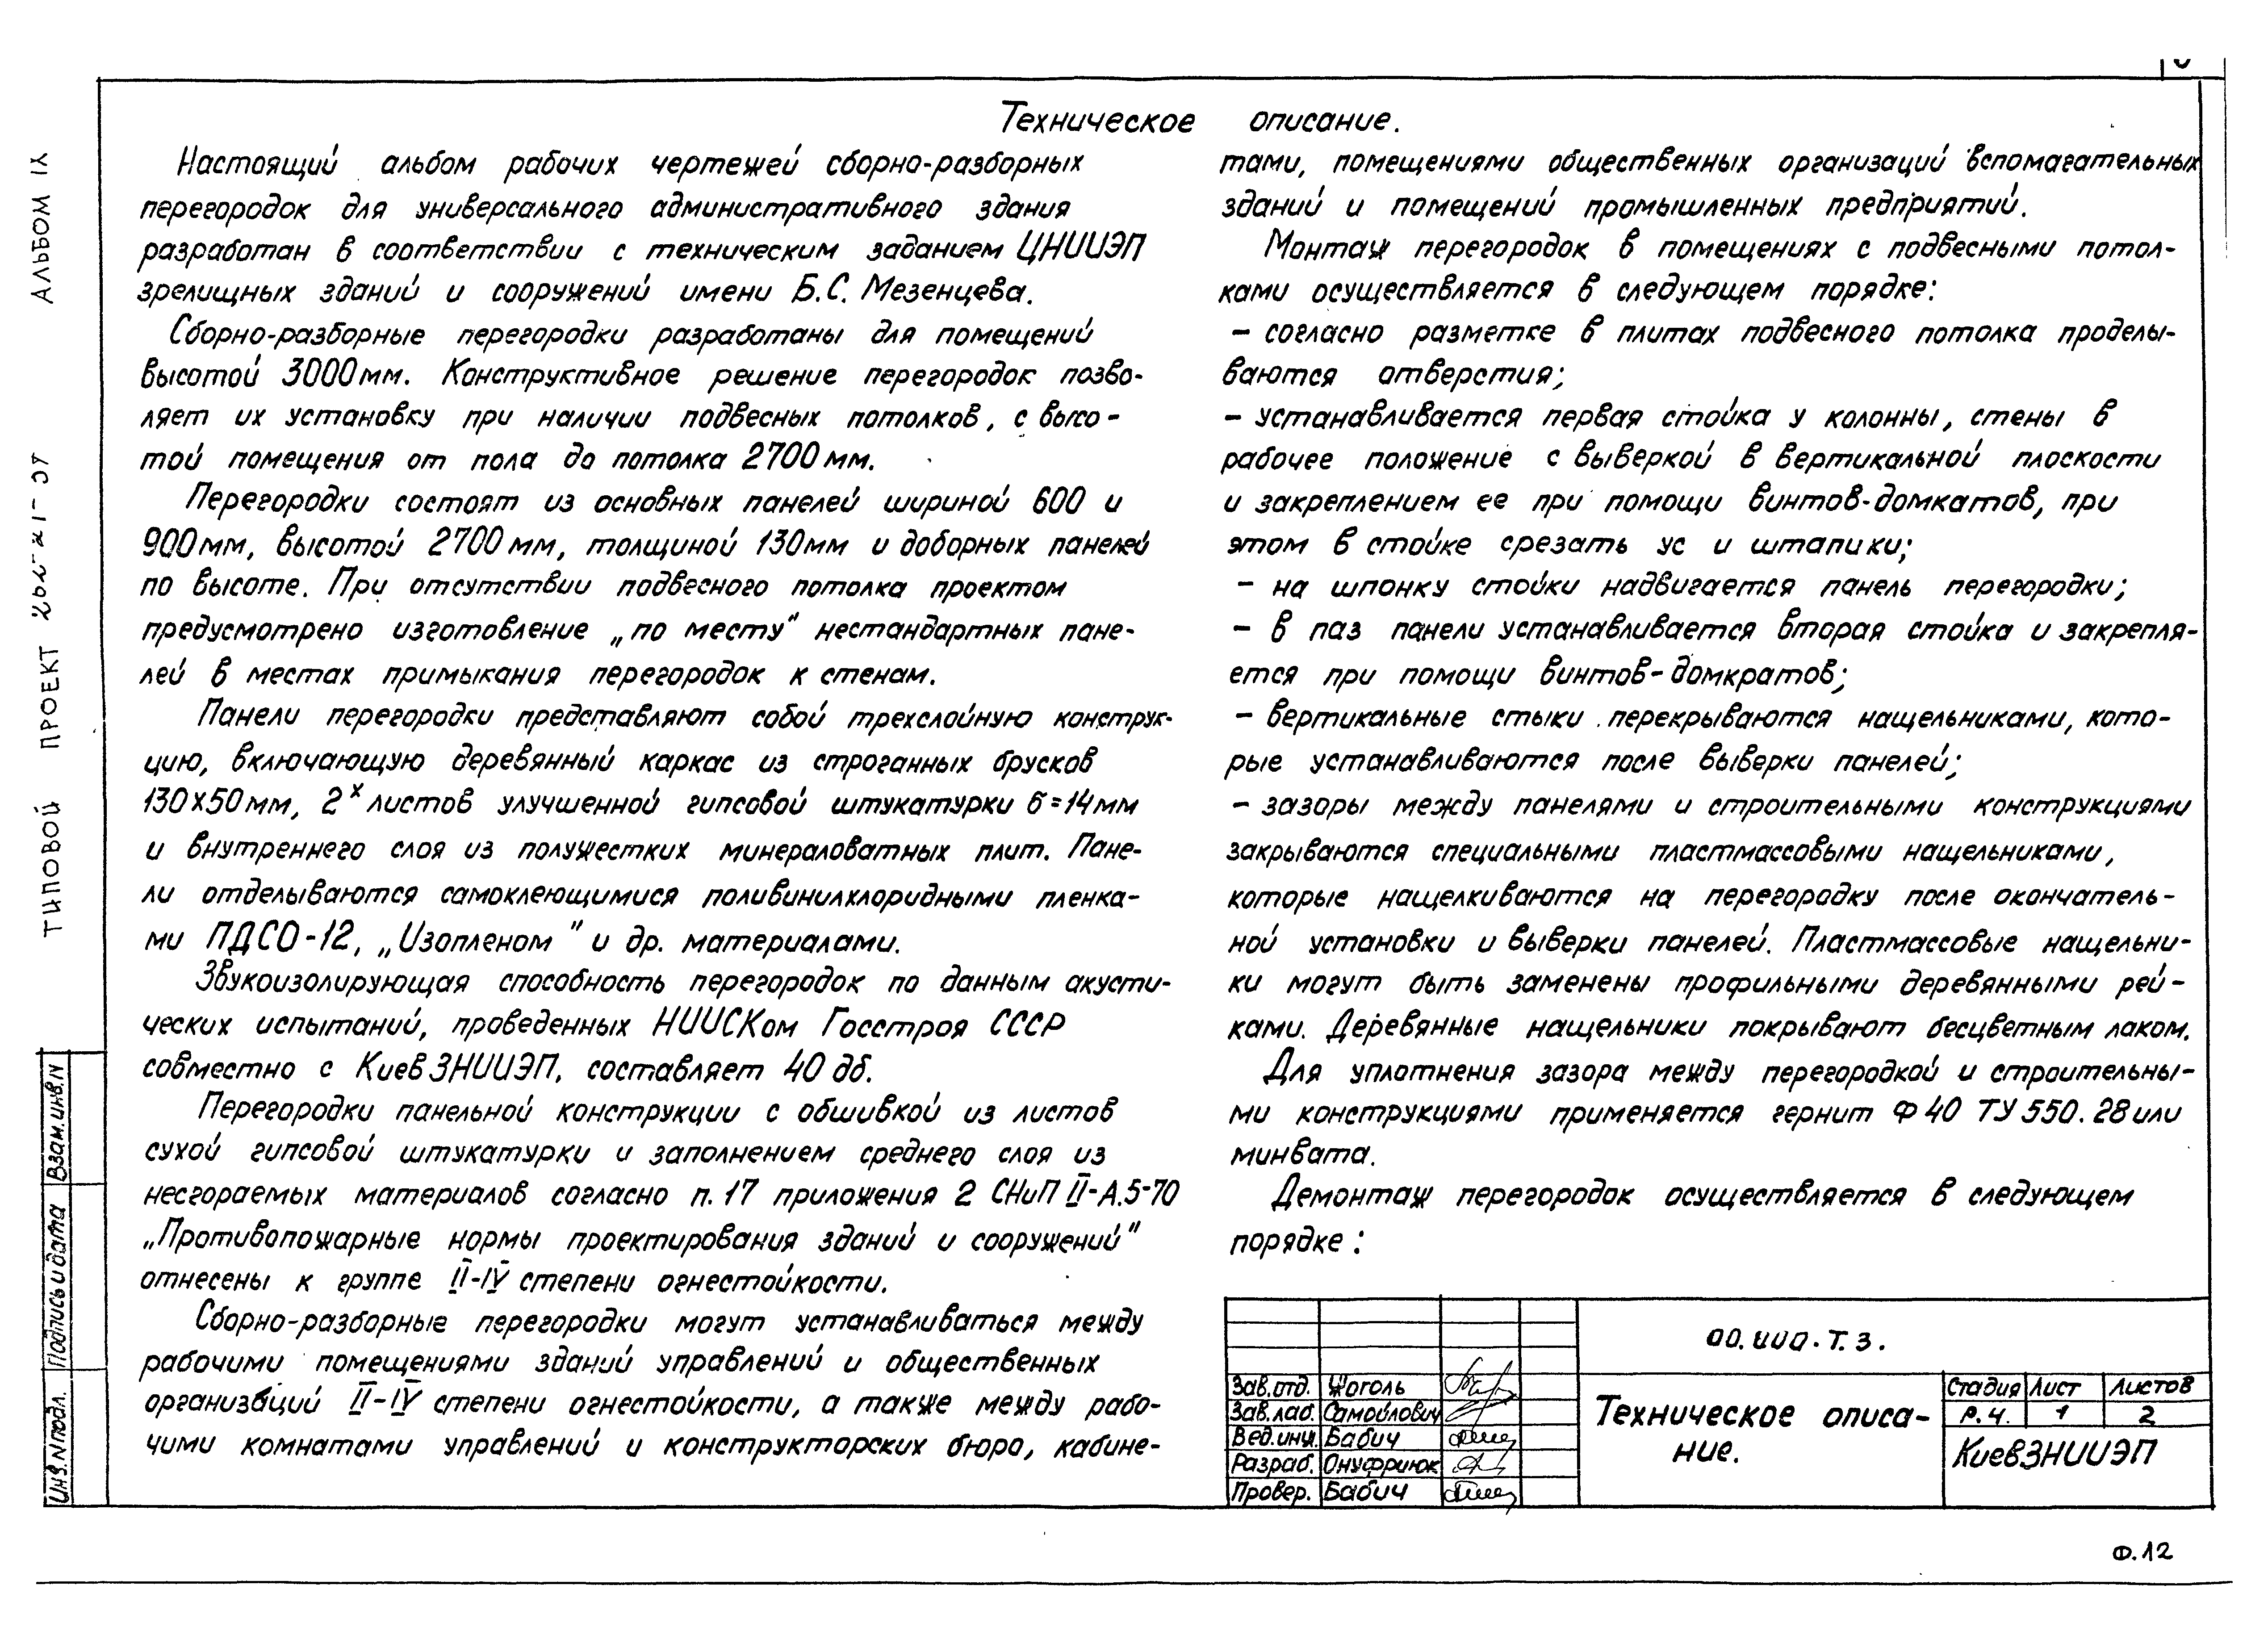 Техническое описание.
Настоящий альбом рабочих чертежей сборно-разборных
перегородок для универсального административного здания
разработан в соответствии с техническим заданием ЦНИИЭП
зрелищных зданий и сооружений имени Б.С. Мезенцева.
Сборно-разборные перегородки разработаны для помещений
высотой 3000мм. Конструктивное решение перегородок позво-
ляет их установку при наличии подвесных потолков, с высо-
той помещения от пола до потолка 2700мм.
Перегородки состоят из основных панелей шириной 600 и
900мм, высотой 2700мм, толщиной 130мм и доборных панелей
по высоте. При отсутствии подвесного потолка проектом
предусмотрено изготовление „по месту" нестандартных пане-
лей в местах примыкания перегородок к стенам.
Панели перегородки представляют собой трехслойную конструк-
цию, включающую деревянный каркас из строганных брусков
130х50мм, 2х листов улучшенной гипсовой штукатурки б=14мм
и внутреннего слоя из полужестких минераловатных плит. Пане-
ли отделываются самоклеющимися поливинилхлоридными пленка-
ми ПДСО-12, „Изопленом" и др. материалами.
Звукоизолирующая способность перегородок по данным акусти-
ческих испытаний, проведенных НИИСКом Госстроя СССР
совместно с КиевЗНИИЭП, составляет 40 дб.
Перегородки панельной конструкции с обшивкой из листов
сухой гипсовой штукатурки и заполнением среднего слоя из
несгораемых материалов согласно п.17 приложения 2 СНиП II-А.5-70
„Противопожарные нормы проектирования зданий и сооружений"
отнесены к группе II-IV степени огнестойкости.
Сборно-разборные перегородки могут устанавливаться между
рабочими помещениями зданий управлений и общественных
организаций II-IV степени огнестойкости, а также между рабо-
чими комнатами управлений и конструкторских бюро, кабине-
тами, помещениями общественных организаций вспомагательных
зданий и помещений промышленных предприятий.
Монтаж перегородок в помещениях с подвесными потол-
ками осуществляется в следующем порядке:
- согласно разметке в плитах подвесного потолка проделы-
ваются отверстия;
- устанавливается первая стойка у колонны, стены в
рабочее положение с выверкой в вертикальной плоскости
и закреплением ее при помощи винтов-домкатов, при
этом в стойке срезать ус и штапики;
- на шпонку стойки надвигается панель перегородки;
- в паз панели устанавливается вторая стойка и закрепля-
ется при помощи винтов-домкратов;
- вертикальные стыки перекрываются нащельниками, кото-
рые устанавливаются после выверки панелей;
- зазоры между панелями и строительными конструкциями
закрываются специальными пластмассовыми нащельниками,
которые нащелкиваются на перегородку после окончатель-
ной установки и выверки панелей. Пластмассовые нащельни-
ки могут быть заменены профильными деревянными рей-
ками. Деревянные нащельники покрывают бесцветным лаком.
Для уплотнения зазора между перегородкой и строительны-
ми конструкциями применяется гернит Ф 40 ТУ 550.28 или
минвата.
Демонтаж перегородок осуществляется в следующем
порядке:
Зав.отд. Жоголь
Зав.лаб. Самойлович
Вед.инж. Бабич
Разраб. Онуфриюк
Провер. Бабич
00.000.Т.З.
Техническое описа-
ние.
Стадия Лист Листов
Р.Ч. 1 2
КиевЗНИИЭП
Ф.12
АЛЬБОМ IX
ТИПОВОЙ ПРОЕКТ
Взам.инв.N
Подпись и дата
Инв.N подл.